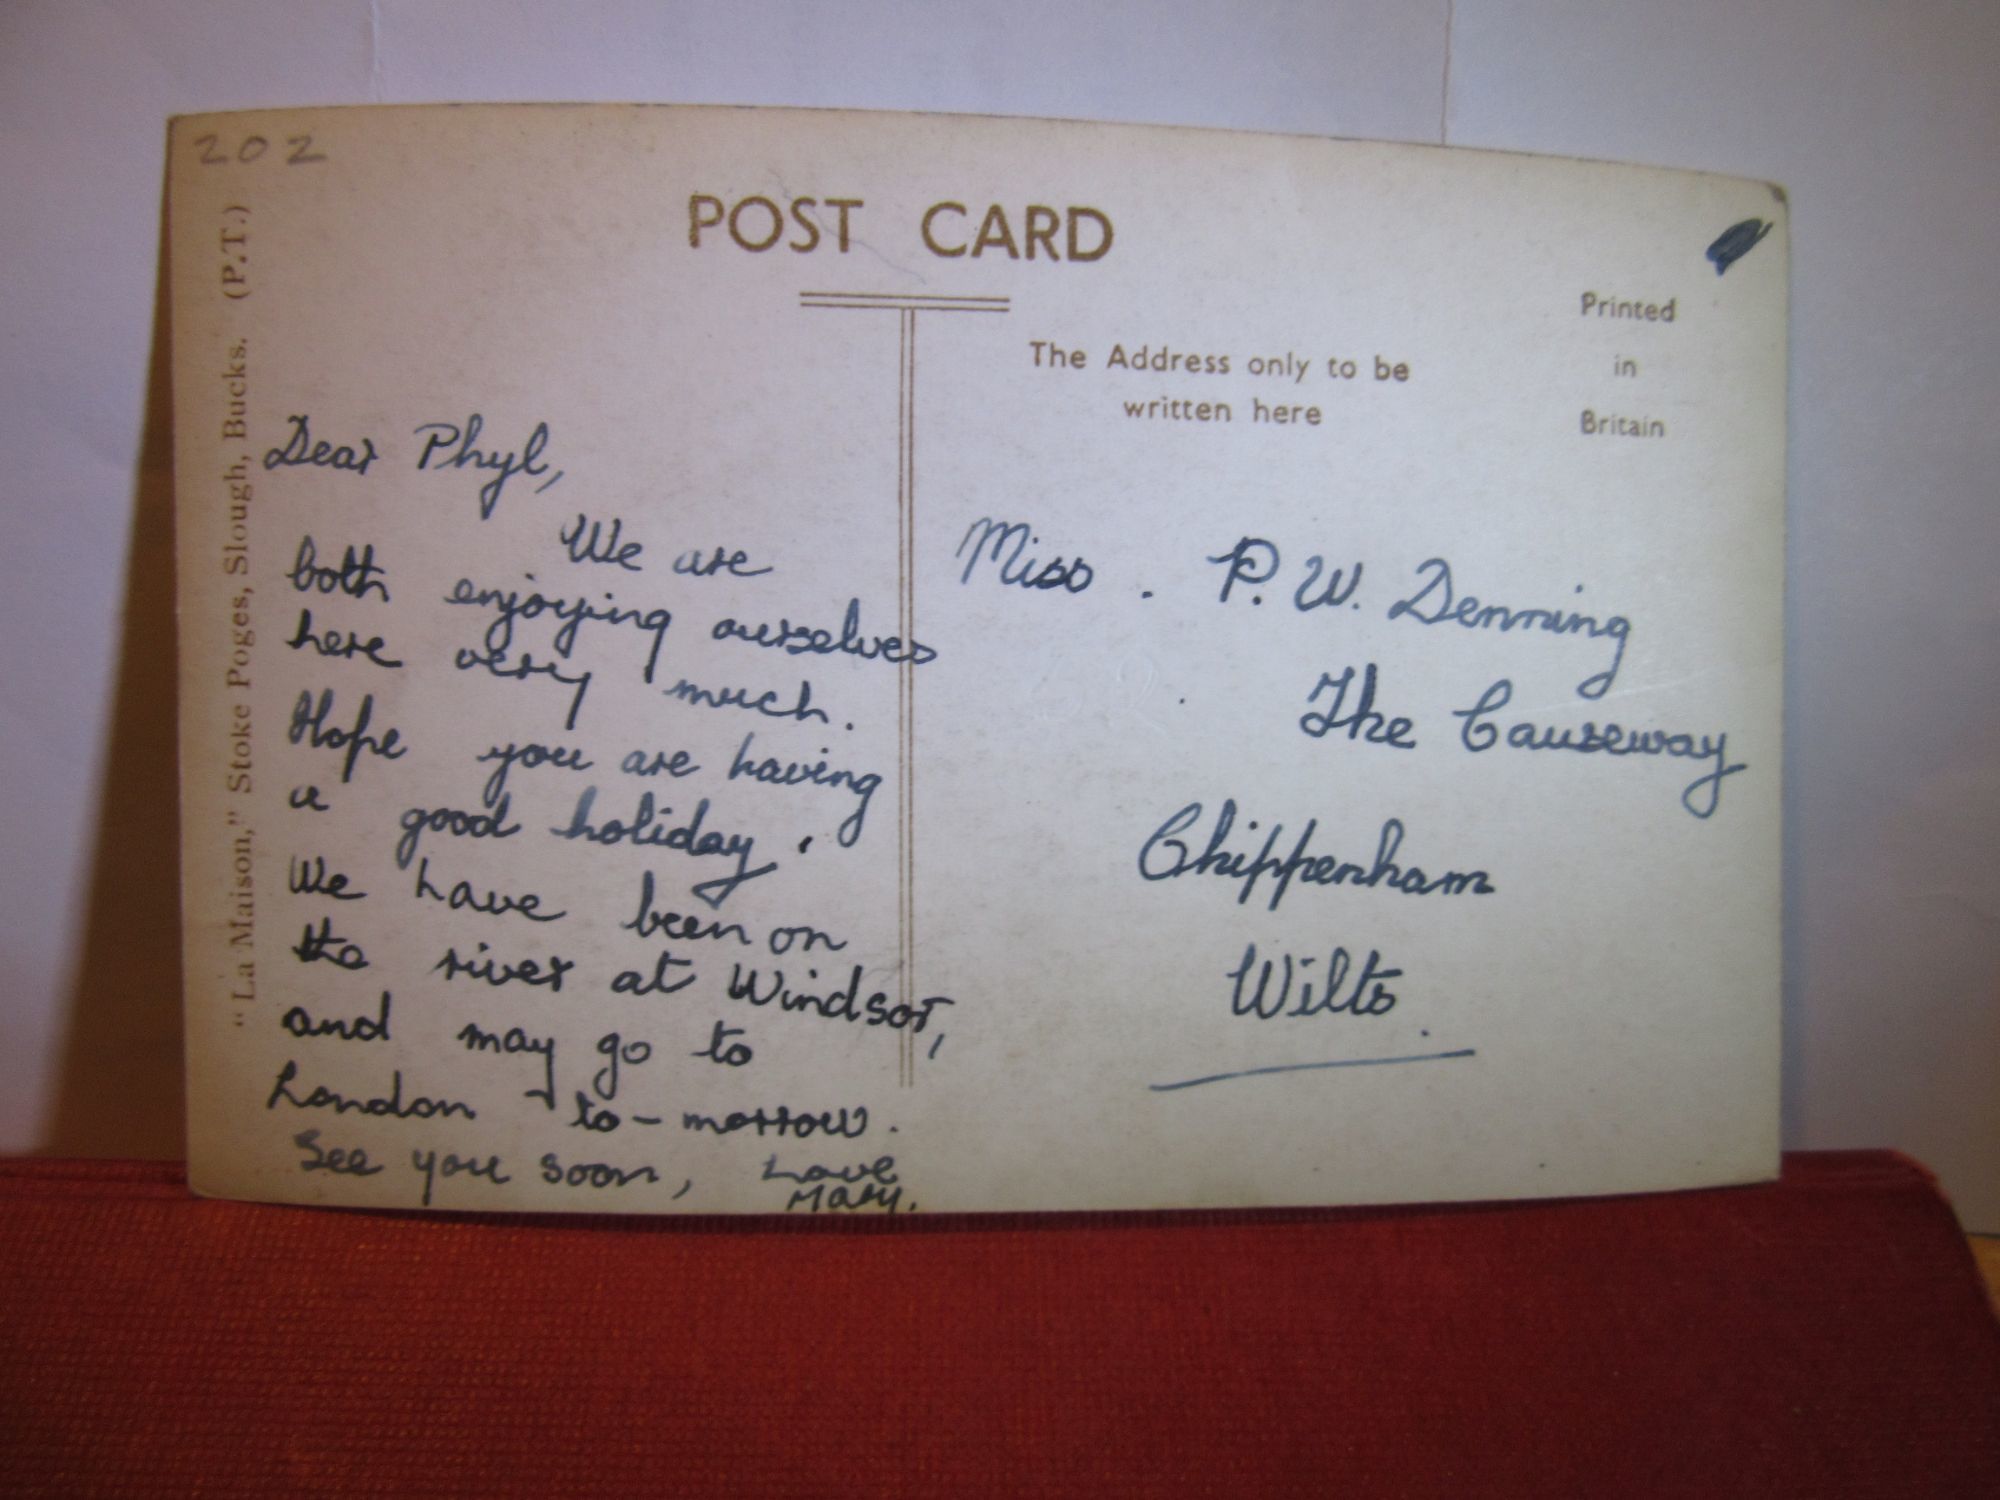 202
POST CARD
"La Maison," Stoke Poges, Slough, Bucks. (P.T.)
Dear Phyl,
We are
both enjoying ourselves
here very much.
Hope you are having
a good holiday.
We have been on
the river at Windsor,
and may go to
London to-morrow.
See you soon, Love
Mary.
The Address only to be
written here
Printed
in
Britain
Miss. P. W. Denning
The Causeway
Chippenham
Wilts.